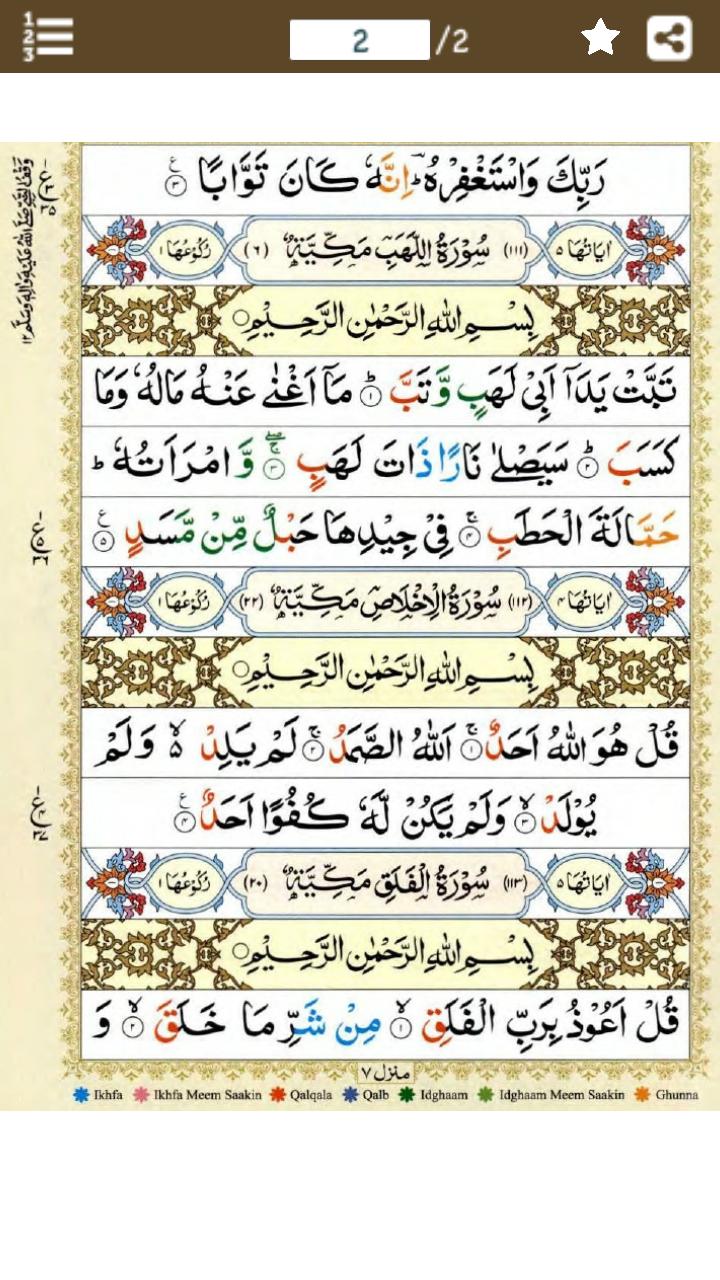 1 2 3
2 /2
رَبِّكَ وَاسْتَغْفِرْهُ ؕؔ اِنَّهٗ كَانَ تَوَّابًا ۳
اٰیَاتُهَا ۵ (۱۱۱) سُوْرَةُ اللَّهَبِ مَكِّيَّةٌ (۶) رُكُوْعُهَا ۱
بِسْمِ اللهِ الرَّحْمٰنِ الرَّحِيْمِ
تَبَّتْ يَدَاۤ اَبِيْ لَهَبٍ وَّ تَبَّ ؕ ۱ مَاۤ اَغْنٰى عَنْهُ مَالُهٗ وَمَا
كَسَبَ ؕ ۲ سَيَصْلٰى نَارًا ذَاتَ لَهَبٍ ۳ وَّ امْرَاَتُهٗ ؕ
حَمَّالَةَ الْحَطَبِ ۚ ۴ فِيْ جِيْدِهَا حَبْلٌ مِّنْ مَّسَدٍ ۵
اٰیَاتُهَا ۴ (۱۱۲) سُوْرَةُ الْاِخْلَاصِ مَكِّيَّةٌ (۲۲) رُكُوْعُهَا ۱
بِسْمِ اللهِ الرَّحْمٰنِ الرَّحِيْمِ
قُلْ هُوَ اللهُ اَحَدٌ ۚ ۱ اَللهُ الصَّمَدُ ۚ ۲ لَمْ يَلِدْ ۙ۬ وَلَمْ
يُوْلَدْ ۙ ۳ وَلَمْ يَكُنْ لَّهٗ كُفُوًا اَحَدٌ ۴
اٰیَاتُهَا ۵ (۱۱۳) سُوْرَةُ الْفَلَقِ مَكِّيَّةٌ (۲۰) رُكُوْعُهَا ۱
بِسْمِ اللهِ الرَّحْمٰنِ الرَّحِيْمِ
قُلْ اَعُوْذُ بِرَبِّ الْفَلَقِ ۙ ۱ مِنْ شَرِّ مَا خَلَقَ ۙ ۲ وَ
منزل ۷
Ikhfa Ikhfa Meem Saakin Qalqala Qalb Idghaam Idghaam Meem Saakin Ghunna